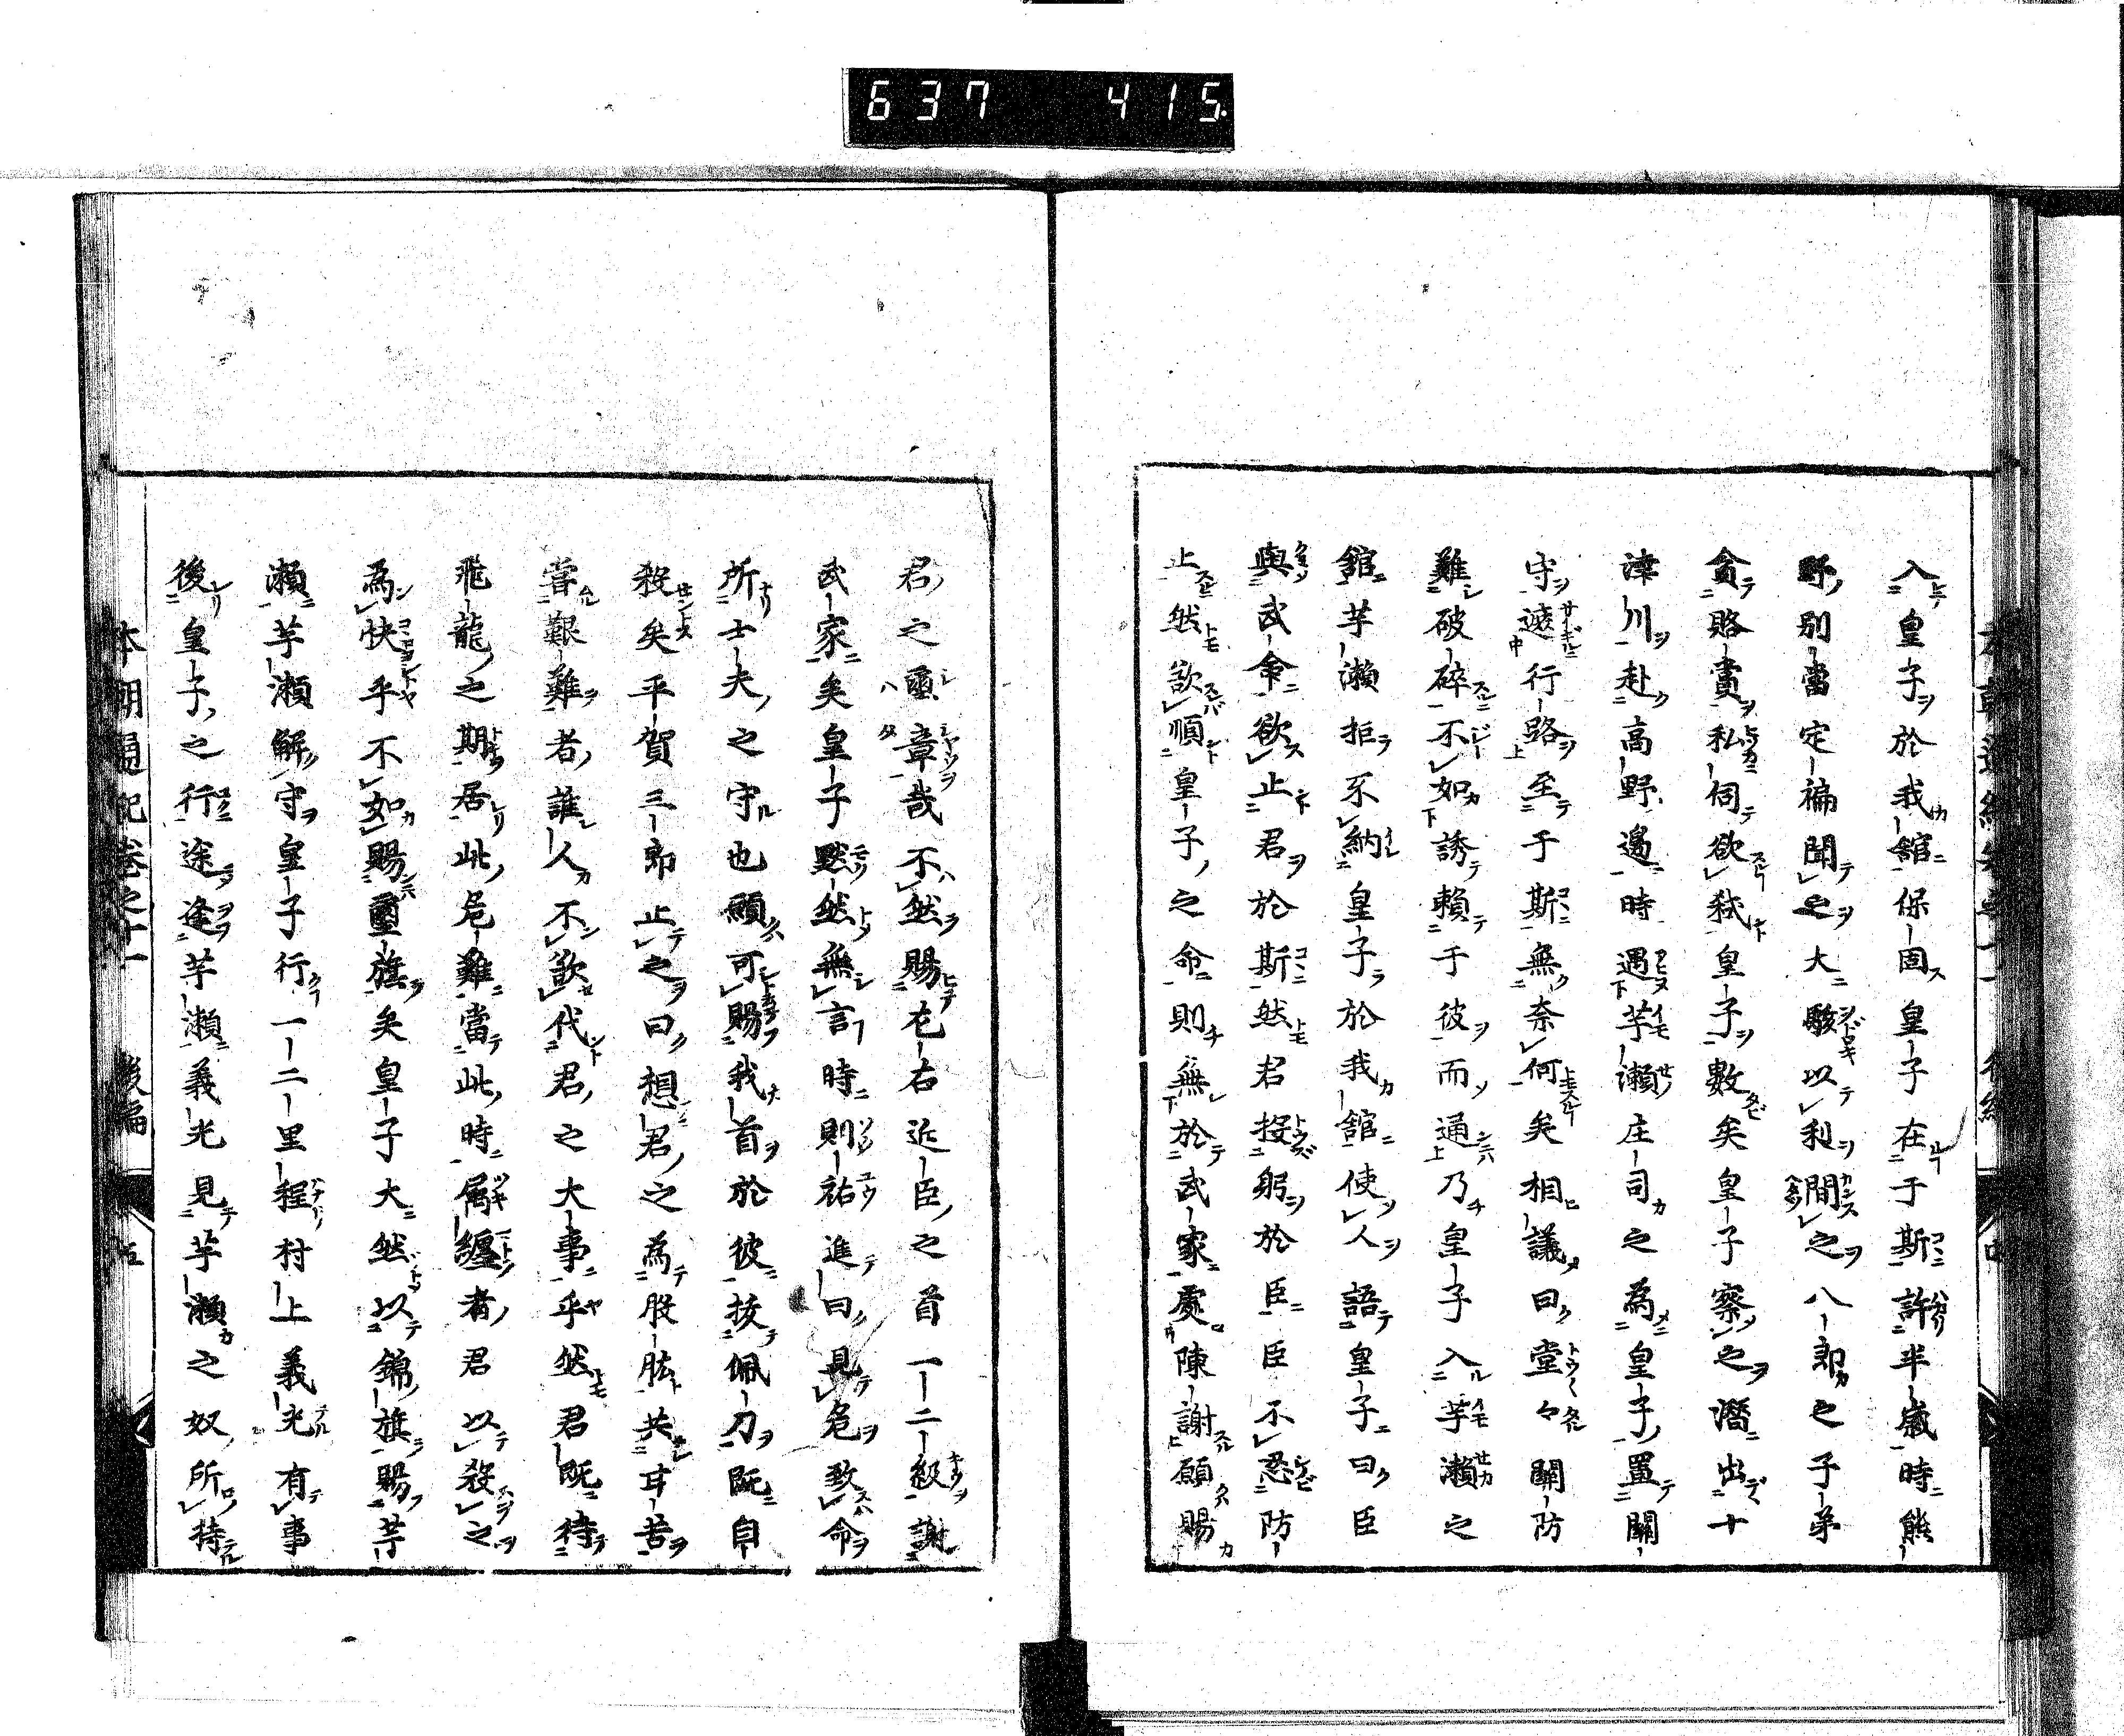 637 415
入皇子於我舘保固皇子在于斯許半歳時熊
野別當定徧聞之大駭以利間之八郎之子弟
貪賂賣私伺欲弑皇子數矣皇子察之潛出十
津川赴高野邊時遇芋瀬庄司之為皇子置關
守遮行路至于斯無奈何矣相議曰堂々關防
難破碎不如誘頼于彼而通乃皇子入芋瀬之
舘芋瀬拒不納皇子於我舘使人語皇子曰臣
與武命欲止君於斯然君投躬於臣臣不忍防
止然欲順皇子之命則無於武家處陳謝願賜
君之璽章哉不然賜左右近臣之首一二級謝
武家矣皇子黙然無言時則祐進曰見危致命
所士夫之守也願可賜我首於彼抜佩刀既自
殺矣平賀三郎止之曰想君之為股肱共甘苦
嘗艱難者誰人不欲代君之大事乎然君既待
飛龍之期居此危難當此時屬纏者君以殺之
為快乎不如賜璽旗矣皇子大然以錦旗賜芋
瀬芋瀬解守皇子行一二里程村上義光有事
後皇子之行途逢芋瀬義光見芋瀬之奴所持
本朝通紀巻之十一 後編 五